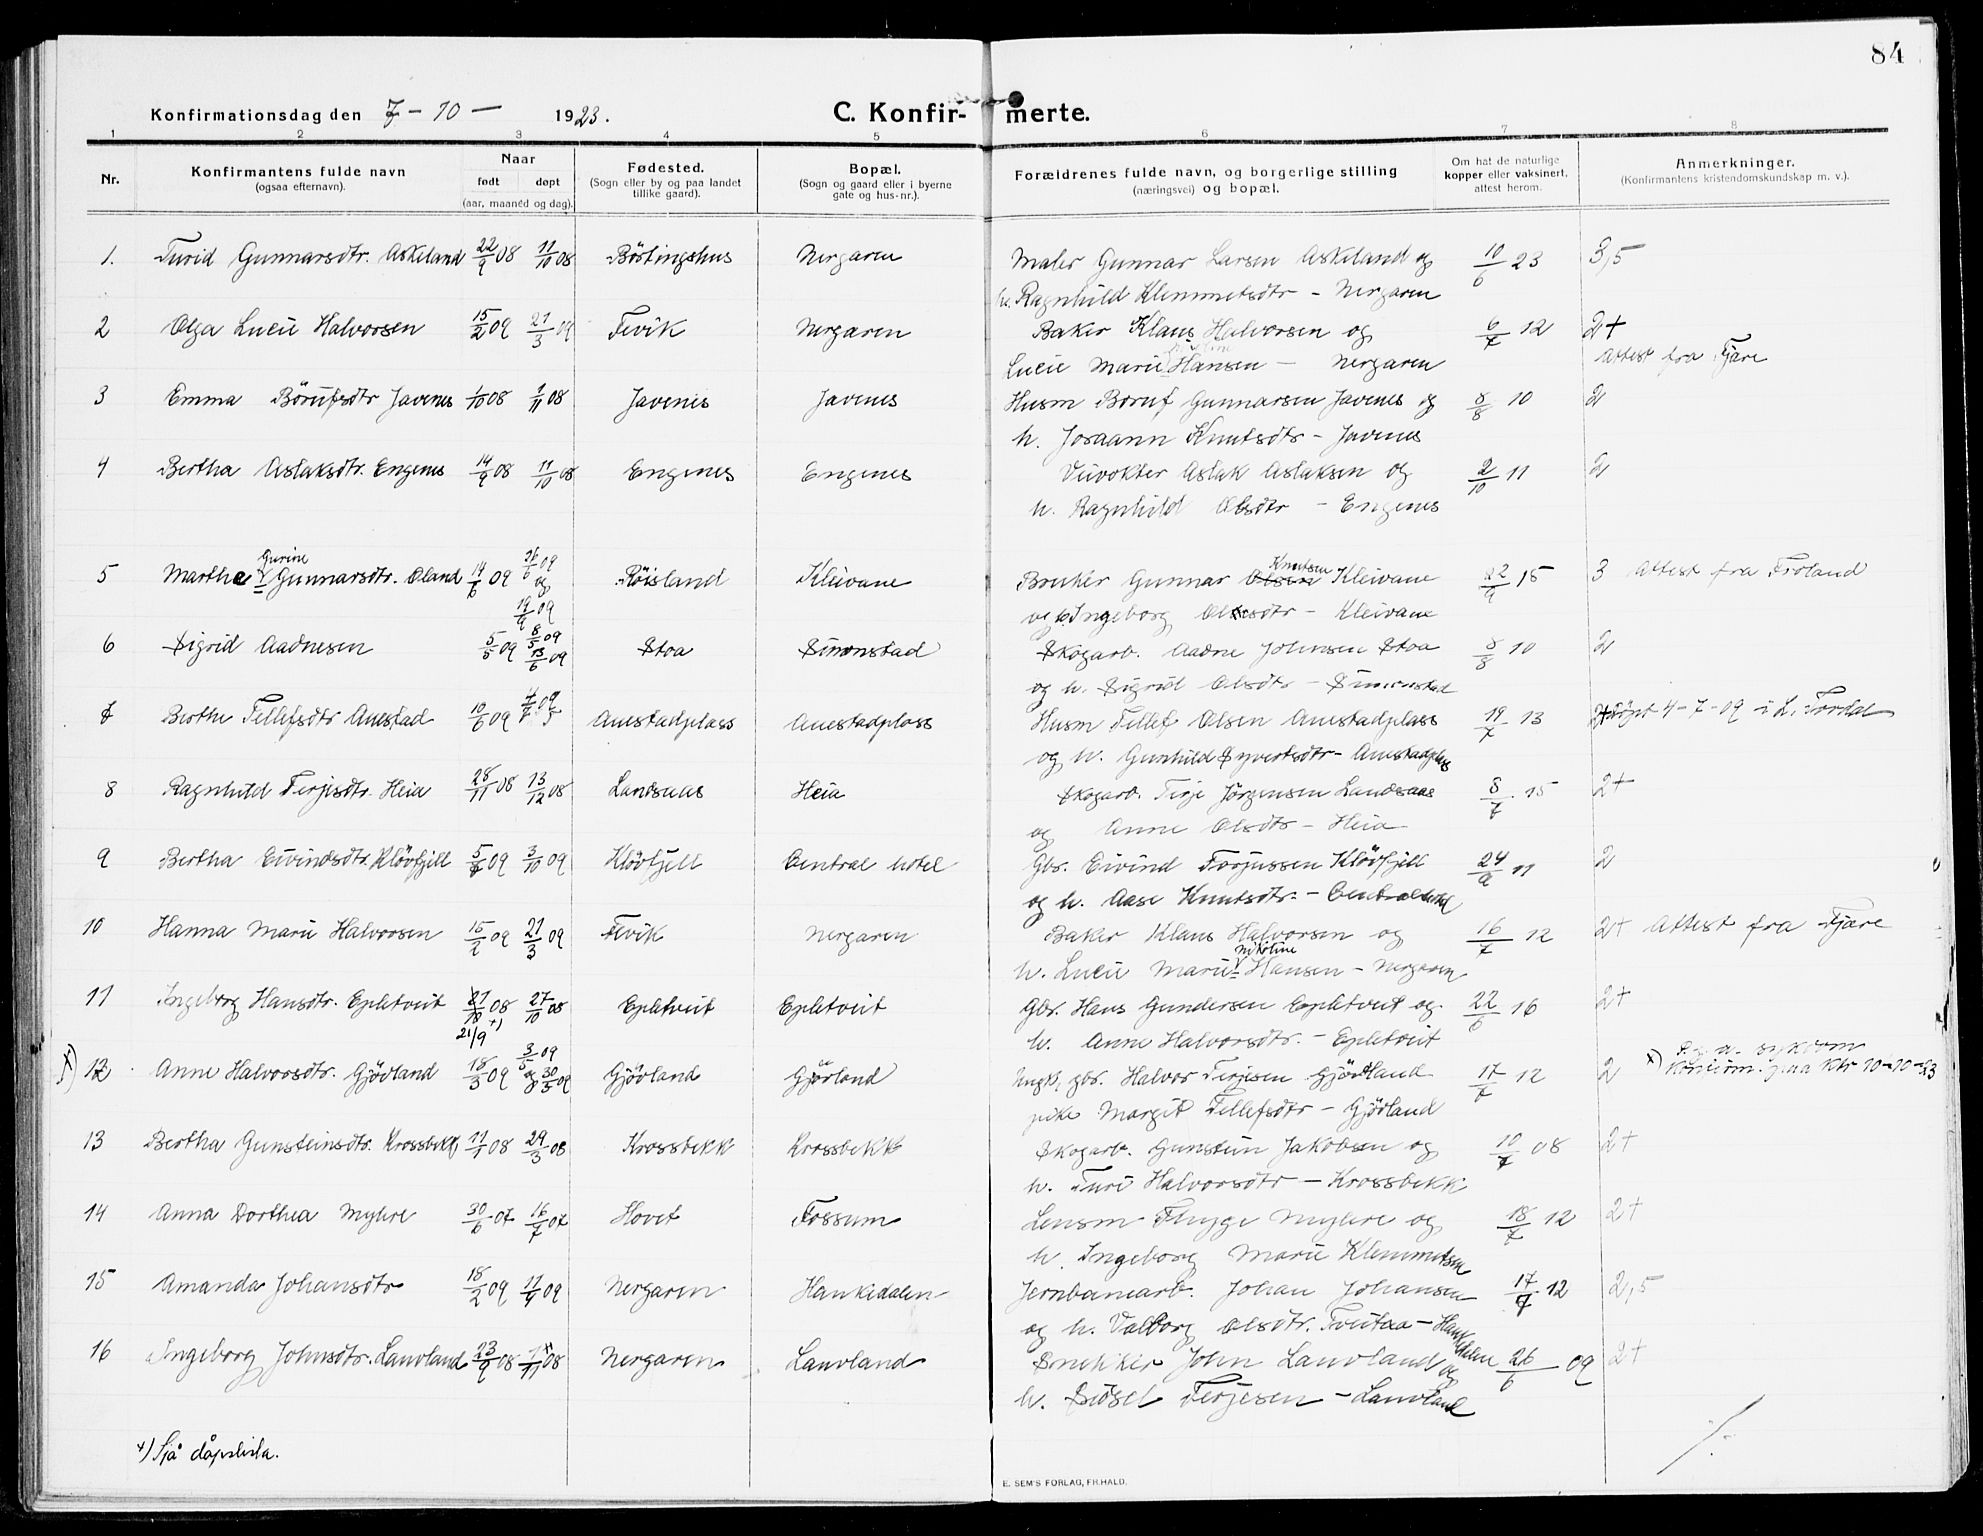 84
Konfirmationsdag den 7 - 10 - 1923.
C. Konfir- merte.
1 2 3 4 5 6 7 8
Nr.
Konfirmantens fulde navn
(ogsaa efternavn).
Naar
født døpt
(aar, maaned og dag).
Fødested.
(Sogn eller by og paa landet
tillike gaard).
Bopæl.
(Sogn og gaard eller i byerne
gate og hus-nr.).
Forældrenes fulde navn, og borgerlige stilling
(næringsvei) og bopæl.
Om hat de naturlige
kopper eller vaksinert,
attest herom.
Anmerkninger.
(Konfirmantens kristendomskundskap m. v.).
1. Turid Gunnarsdtr. Askeland 22/9 08 11/10 08 Böstingshus Nergaren Maler Gunnar Larsen Askeland og 10/6 23 3,5
h. Ragnhild Klemmetsdtr - Nergaren
2 Olga Lucie Halvorsen 15/2 09 21/3 09 Fevik Nergaren Baker Klaus Halvorsen og 6/7 12 2+
Lucie Marie Hansen - Nergaren Attest fra Fjære
3 Emma Börufsdtr Javenes 1/10 08 1/11 08 Javenes Javenes Husm Boruf Gunnarsen Javenes og 8/8 10 2
h. Joraann Knutsdtr - Javenes
4 Bertha Aslaksdtr. Engenes 14/9 08 11/10 08 Engenes Engenes Veivokter Aslak Aslaksen og 2/10 11 2
h. Ragnhild Olsdtr - Engenes
5 Marthe Gurine Gunnarsdtr. Oland 14/6 09 16/6 09 og 19/9 09 Röisland Kleivane Bruker Gunnar Olsen Knutsen Kleivane 22/9 15 3 Attest fra Froland
og Ingeborg Olsdtr - Kleivane
6 Sigrid Aadnesen 5/5 09 8/5 09 13/6 09 Stoa Simonstad Skogarb. Aadne Johnsen Stoa 8/8 10 2
og h. Sigrid Olsdtr - Simonstad
7 Berthe Tellefsdtr Auestad 10/6 09 4/7 09 Auestadplass Auestadplass Husm Tellef Olsen Auestadplass 19/7 13 döpt 4-7-09 i L. Tordal
og h. Gunhild Syvertsdtr - Auestadplass
8 Ragnhild Terjesdtr. Heia 28/11 08 13/12 08 Landsaas Heia Skogarb. Terje Jörgensen Landsaas 8/7 15 2+
og Anne Olsdtr - Heia
9 Bertha Eivindsdtr. Klövfjell 5/8 09 3/10 09 Klövfjell Central hotel Gbr. Eivind Torjussen Klövfjell 24/9 11 2
og h. Aase Knutsdtr. - Central hotel
10 Hanna Marie Halvorsen 15/2 09 21/3 09 Fevik Nergaren Baker Klaus Halvorsen og 16/7 12 2+ Attest fra Fjære
h. Lucie Marie Nikoline Hansen - Nergaren
11 Ingeborg Hansdtr. Epletveit 21/10 08 27/10 08 Epletveit Epletveit Gbr. Hans Gundersen Epletveit og 22/6 16 2+
21/9 +)
h. Anne Halvorsdtr. - Epletveit
x) 12 Anne Halvorsdtr. Gjövland 18/3 09 3/5 09 og 30/5 09 Gjövland Gjövland Ungk. gbr. Halvor Terjesen Gjövland 17/7 12 2 x) P. g. a. sykdom
konfirm. paa Ktr 10-10-23
pike Margit Tellefsdtr - Gjövland
13 Bertha Gunsteinsdtr. Krossbekk 17/1 08 29/3 08 Krossbekk Krossbekk Skogarb. Gunstein Jakobsen og 10/7 08 2+
h. Turi Halvorsdtr - Krossbekk
14 Anna Dorthea Myhre 30/6 07 16/7 07 Hovet Fossum Lensm Thyge Myhre og 18/7 12 2+
h. Ingeborg Marie Klemmetsen
15 Amanda Johansdtr 18/2 09 11/4 09 Nergaren Hankedalen Jernbanearb. Johan Johansen 17/7 12 2,5
og h. Valborg Olsdtr. Tveitaa - Hankedalen
16 Ingeborg Johnsdtr. Lauvland 23/9 08 1/11 08 Nergaren Lauvland Snekker John Lauvland og 26/6 09 2+
h. Sidsel Terjesen - Lauvland
+) Sjå dåpslista.
E. SEM'S FORLAG, FR.HALD.